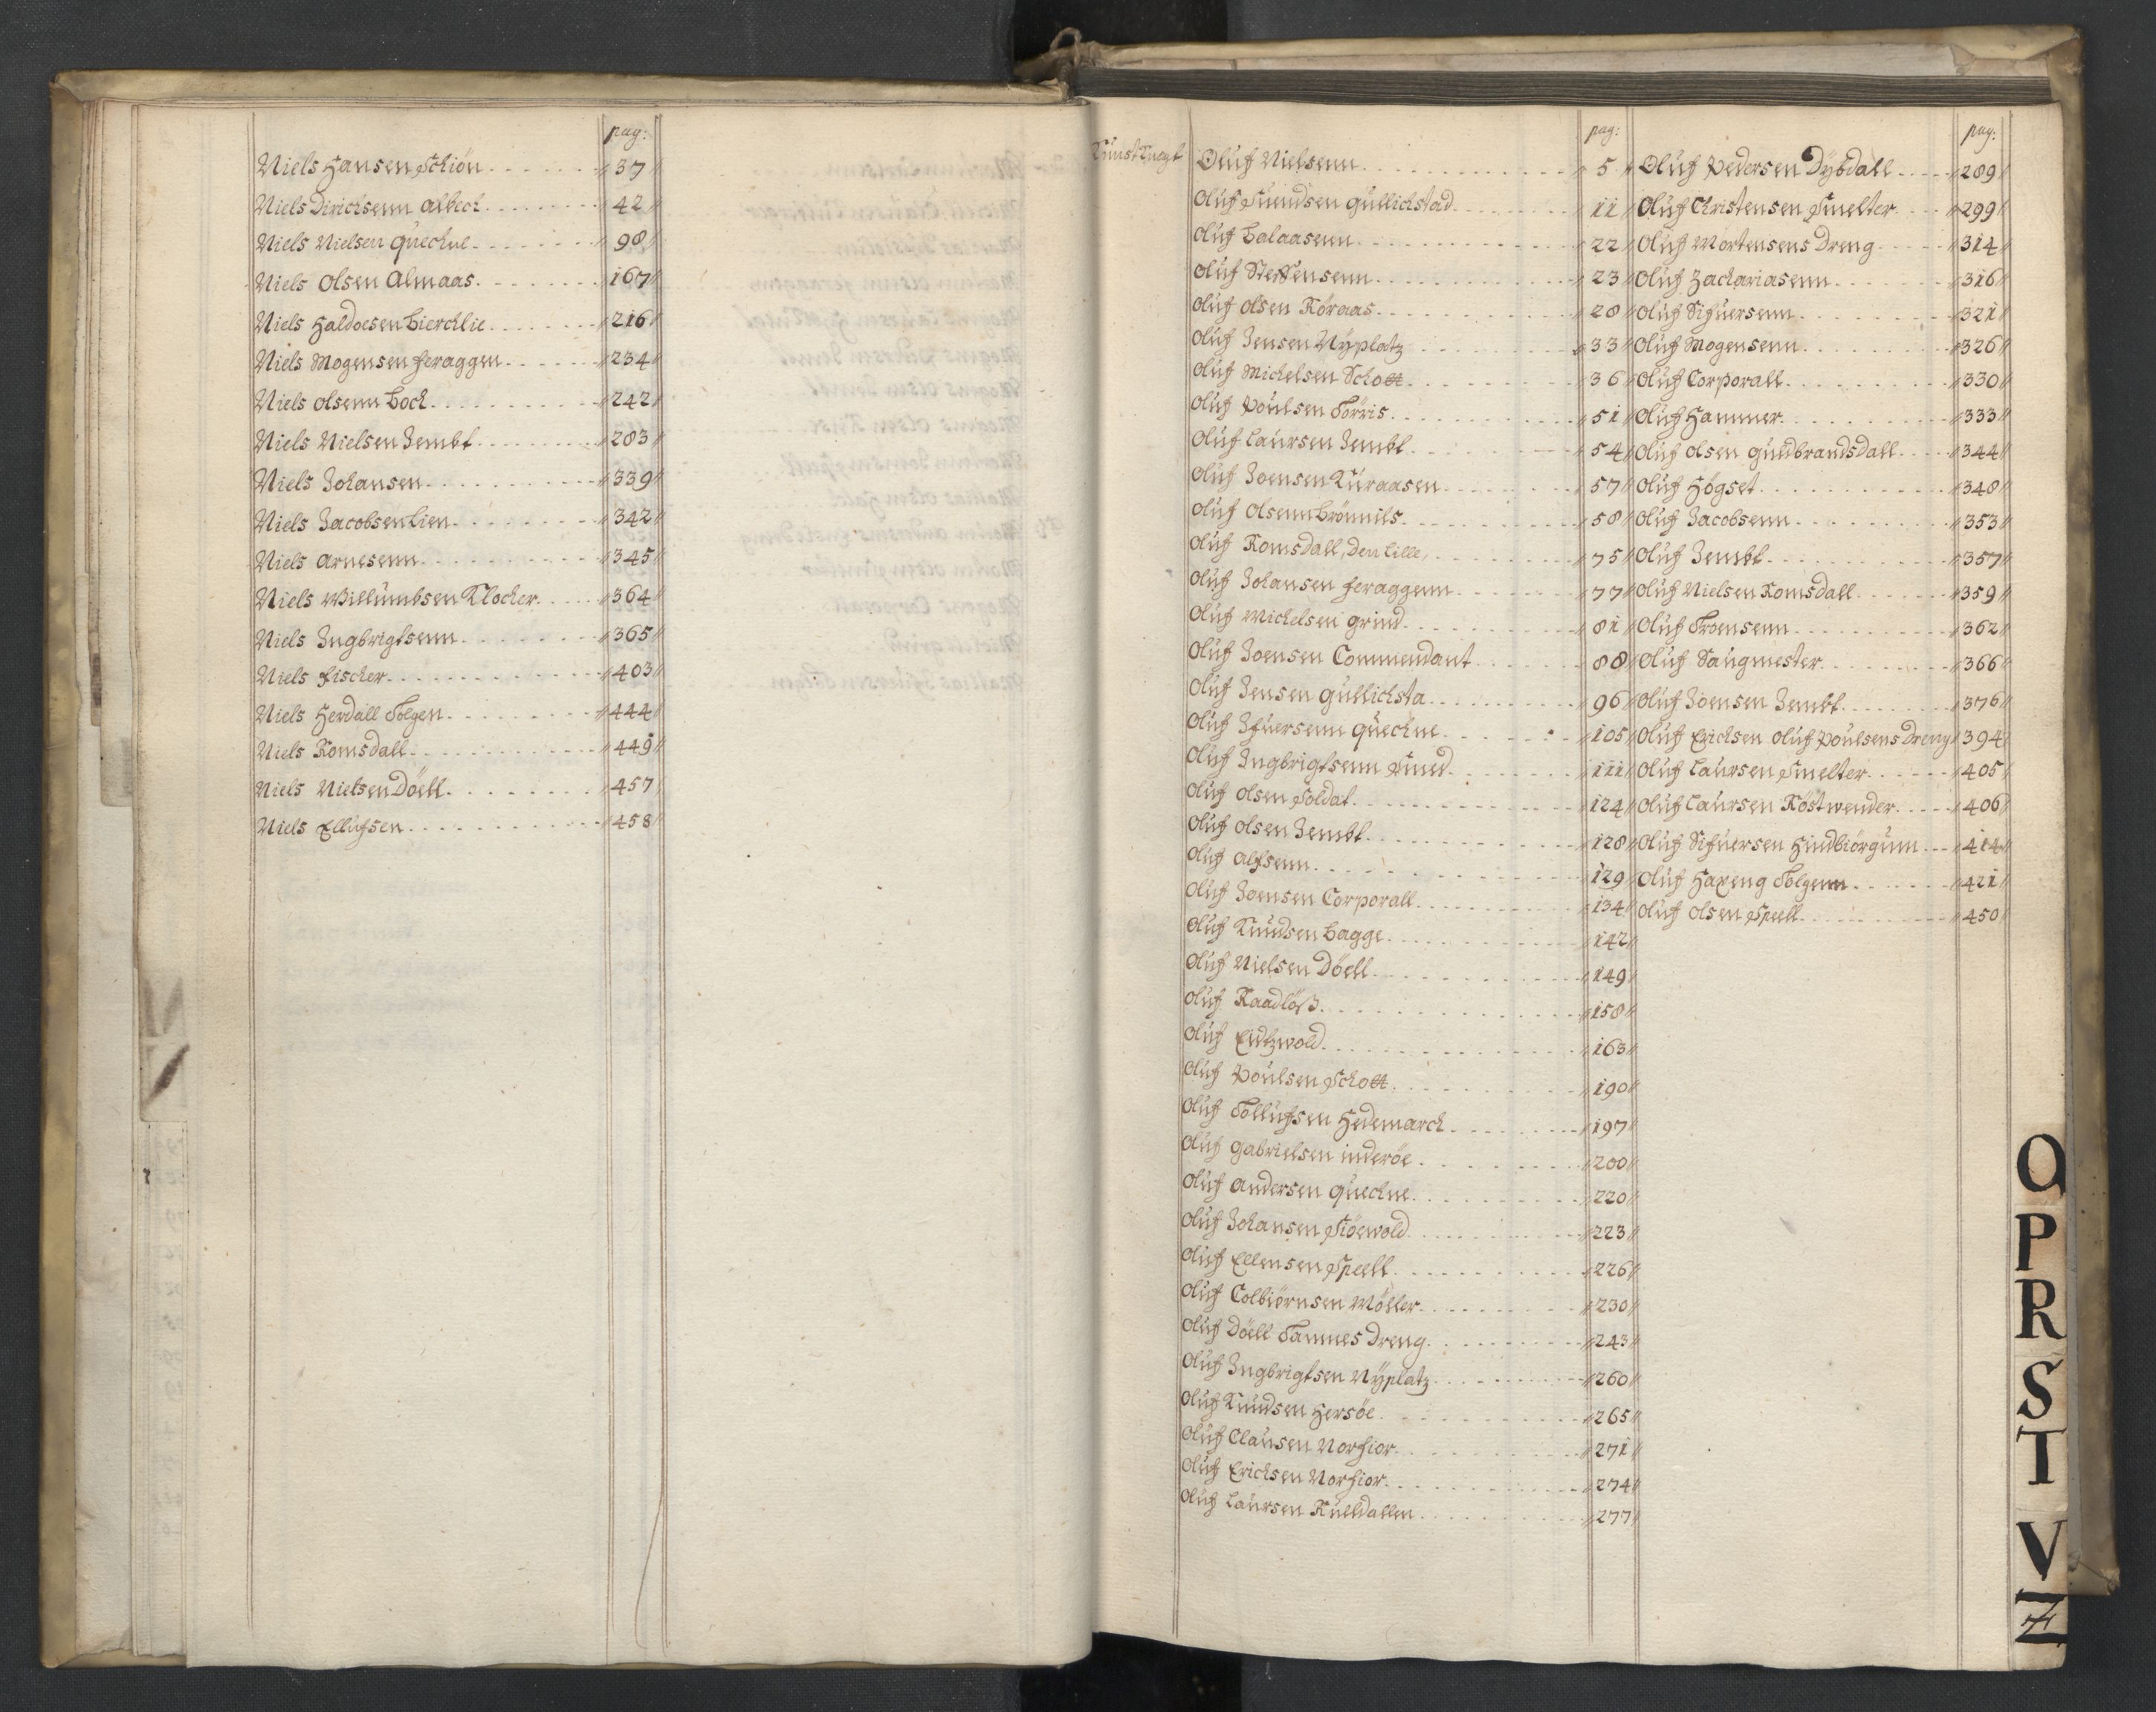 pag:
Niels Hansen Schiön 37
Niels Dirichsenn Albech 42
Niels Nielsen Quechne 98
Niels Olsen Almaas 167
Niels Haldoesen Bierchlie 216
Niels Mogensen Feraggen 234
Niels Olsenn Boch 242
Niels Nielsen Jembt 283
Niels Johansen 339
Niels Jacobsen Lien 342
Niels Arnesenn 345
Niels Willumbsen Klocher 364
Niels Ingbrigtsenn 365
Niels Fischer 403
Niels Herdall Tolgen 444
Niels Romsdall 449
Niels Nielsen Döell 457
Niels Ellufsen 458
pag:
Kunst Knegt Oluf Nielsenn 5
Oluf Suendsen Gullichstad 11
Oluf Balaasenn 22
Oluf Steffensenn 23
Oluf Olsen Röraas 28
Oluf Jensen Nÿplatz 33
Oluf Michelsen Schott 36
Oluf Poulsen Törris 51
Oluf Laursen Jembt 54
Oluf Joensen Kuraasen 57
Oluf Olsenn Brönnils 58
Oluf Romsdall, Den Lille, 75
Oluf Johansen Feraggenn 77
Oluf Michelsen Grind 81
Oluf Joensen Commendant 88
Oluf Jensen Gullichsta 96
Oluf Ifuersenn Quechne 105
Oluf Ingbrigtsenn Smed 111
Oluf Olsen Soldat 124
Oluf Olsen Jembt 128
Oluf Alfsenn 129
Oluf Joensen Corporall 134
Oluf Knudsen Bagge 142
Oluf Nielsen Döell 149
Oluf Raadlöß 158
Oluf Eidtzwold 163
Oluf Poulsen Schott 190
Oluf Tollufsen Hedemarch 197
Oluf Gabrielsen Inderöe 200
Oluf Andersen Quechne 220
Oluf Johansen Siöewold 223
Oluf Ellensen Speell 226
Oluf Colbiörnsen Möller 230
Oluf Döell Tammes Dreng 243
Oluf Ingbrigtsen Nÿplatz 260
Oluf Knudsen Hersöe 265
Oluf Clausen Norfior 271
Oluf Erichsen Norfior 274
Oluf Laursen Kulldallen 277
pag:
Oluf Pedersen Dybdall 289
Oluf Christensen Smelter 299
Oluf Mortensens Dreng 314
Oluf Zachariasenn 316
Oluf Sifuersenn 321
Oluf Mogensenn 326
Oluf Corporall 330
Oluf Hammer 333
Oluf Olsen Guldbrandsdall 344
Oluf Högset 348
Oluf Jacobsenn 353
Oluf Jembt 357
Oluf Nielsen Romsdall 359
Oluf Troensenn 362
Oluf Saugmester 366
Oluf Joensen Jembt 376
Oluf Erichsen Oluf Poulsens Dreng 394
Oluf Laursen Smelter 405
Oluf Laursen Röstwender 406
Oluf Sifuersen Hindbiörgum 414
Oluf Haveng Tolgenn 421
Oluf Olsen Speell 450
O
P
R
S
T
V
Z